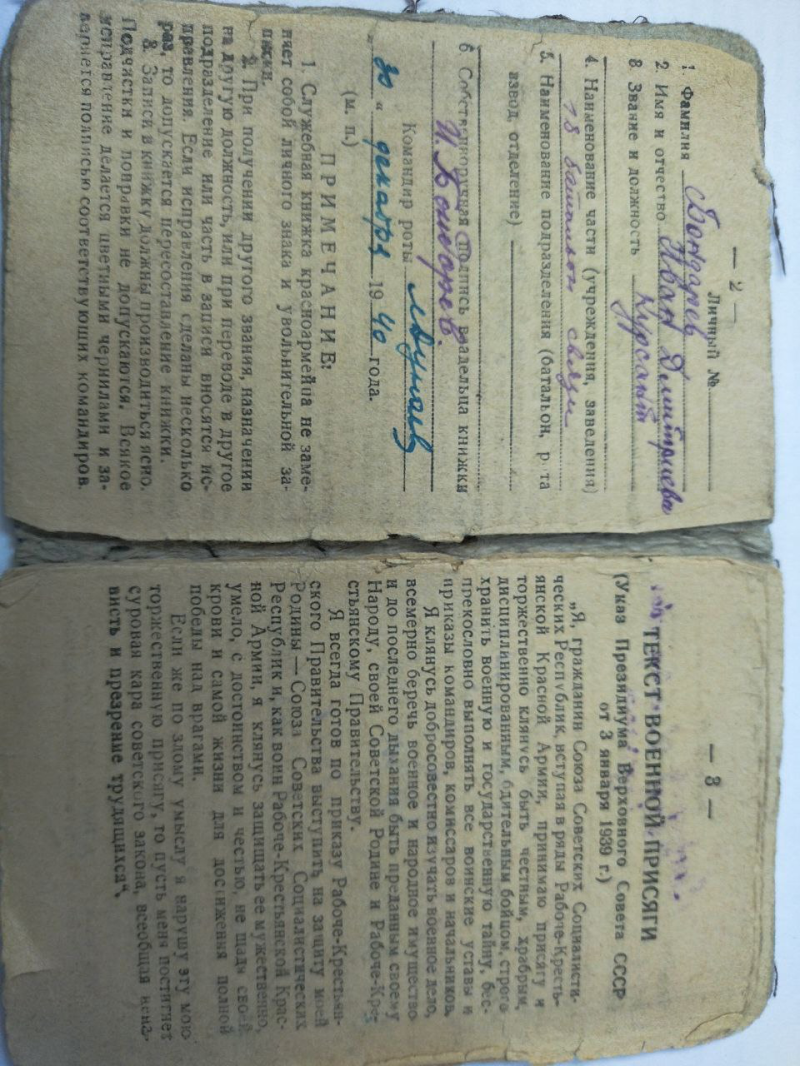 — 2 —
Личный №
1. Фамилия Бондарев
2. Имя и отчество Иван Дмитриев
3 Звание и должность Курсант
4. Наименование части (учреждения, заведения)
18 батальон связи
5. Наименование подразделения (батальон, рота
взвод, отделение)
6 Собственноручная подпись владельца книжки
И. Бондарев
Командир роты
30 " декабря 19 40 года.
(м. п.)
ПРИМЕЧАНИЕ:
1. Служебная книжка красноармейца не заме-
няет собой личного знака и увольнительной за-
писки.
2. При получении другого звания, назначении
на другую должность, или при переводе в другое
подразделение или часть в записи вносятся ис-
правления. Если исправления сделаны несколько
раз, то допускается пересоставление книжки.
3. Записи в книжку должны производиться ясно.
Подчистки и поправки не допускаются. Всякое
исправление делается цветными чернилами и за-
веряется подписью соответствующих командиров.
— 3 —
ТЕКСТ ВОЕННОЙ ПРИСЯГИ
(Указ Президиума Верховного Совета СССР
от 3 января 1939 г.)
„Я, гражданин Союза Советских Социалисти-
ческих Республик, вступая в ряды Рабоче-Кресть-
янской Красной Армии, принимаю присягу и
торжественно клянусь быть честным, храбрым,
дисциплинированным, бдительным бойцом, строго
хранить военную и государственную тайну, бес-
прекословно выполнять все воинские уставы и
приказы командиров, комиссаров и начальников.
Я клянусь добросовестно изучать военное дело,
всемерно беречь военное и народное имущество
и до последнего дыхания быть преданным своему
Народу, своей Советской Родине и Рабоче-Кре-
стьянскому Правительству.
Я всегда готов по приказу Рабоче-Крестьян-
ского Правительства выступить на защиту моей
Родины — Союза Советских Социалистических
Республик и, как воин Рабоче-Крестьянской Крас-
ной Армии, я клянусь защищать ее мужественно,
умело, с достоинством и честью, не щадя своей
крови и самой жизни для достижения полной
победы над врагами.
Если же по злому умыслу я нарушу эту мою
торжественную присягу, то пусть меня постигнет
суровая кара советского закона, всеобщая нена-
висть и презрение трудящихся“.